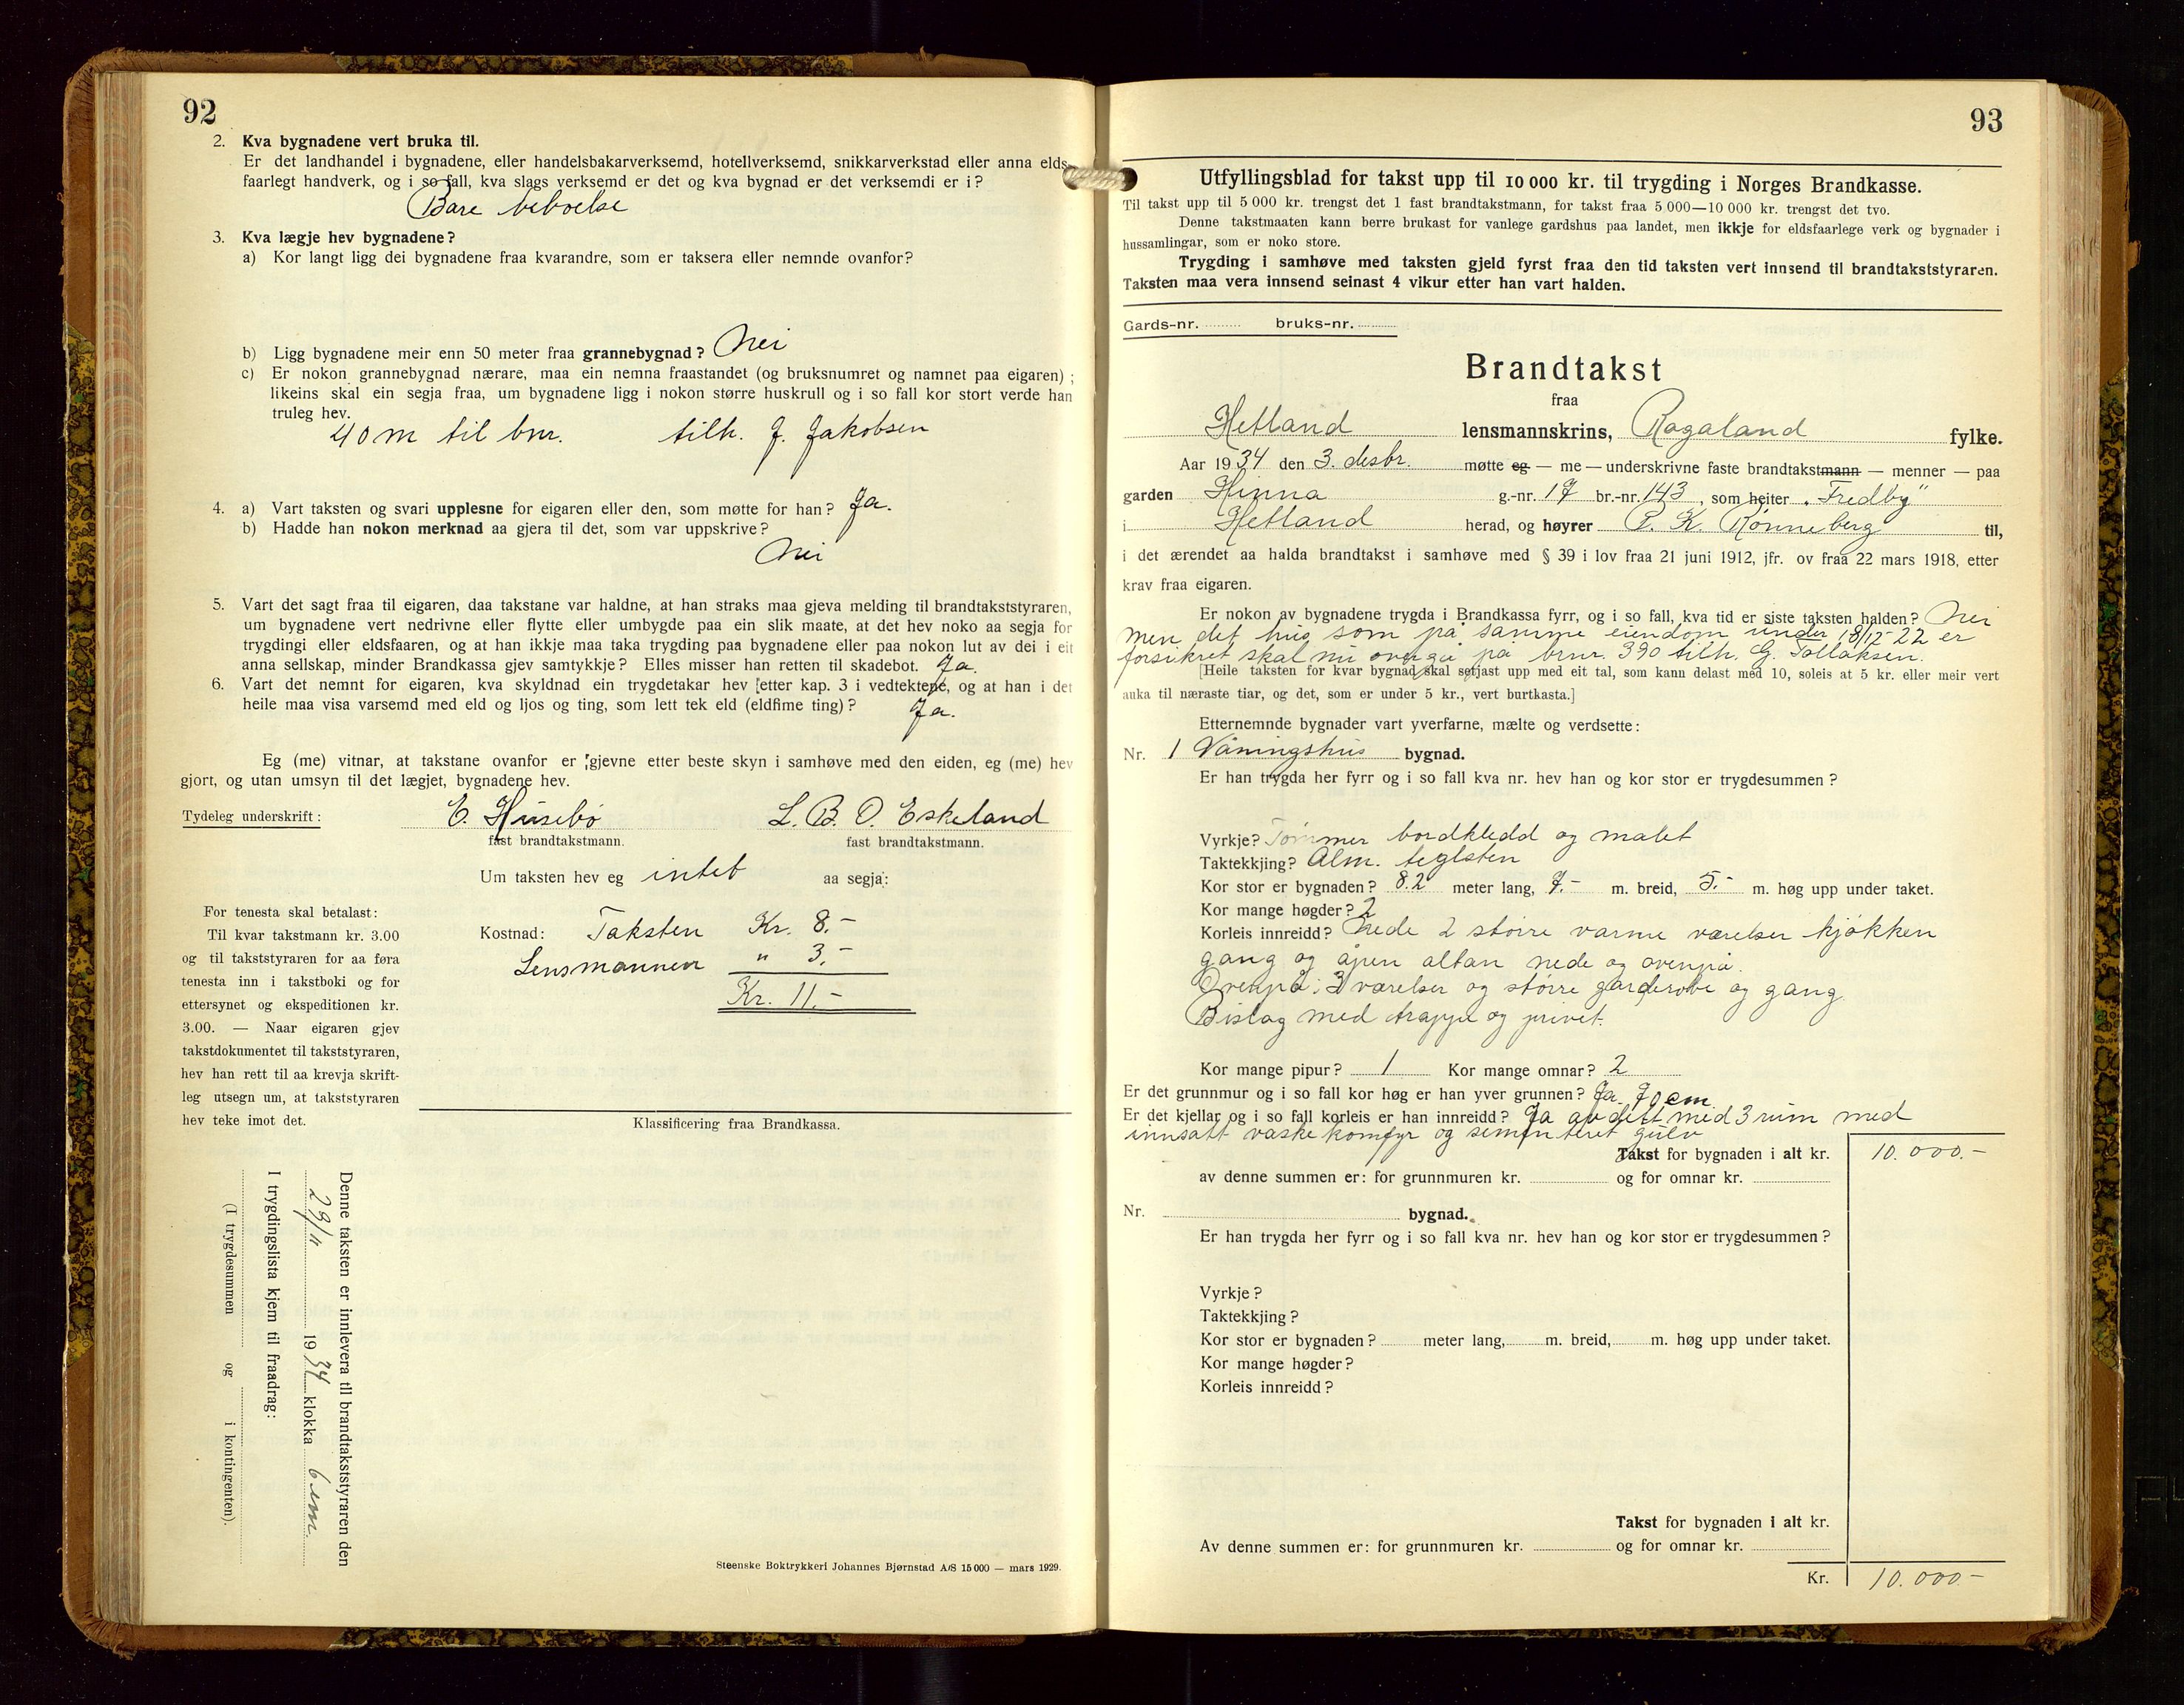 92
2. Kva bygnadene vert bruka til.
Er det landhandel i bygnadene, eller handelsbakarverksemd, hotellverksemd, snikkarverkstad eller anna elds-
faarlegt handverk, og i so fall, kva slags verksemd er det og kva bygnad er det verksemdi er i?
Bare beboelse
3. Kva lægje hev bygnadene?
a) Kor langt ligg dei bygnadene fraa kvarandre, som er taksera eller nemnde ovanfor?
b) Ligg bygnadene meir enn 50 meter fraa grannebygnad? Nei
c) Er nokon grannebygnad nærare, maa ein nemna fraastandet (og bruksnumret og namnet paa eigaren);
likeins skal ein segja fraa, um bygnadene ligg i nokon større huskrull og i so fall kor stort verde han
truleg hev.
40 m til bnr. tilh. J. Jakobsen
4. a) Vart taksten og svari upplesne for eigaren eller den, som møtte for han? Ja.
b) Hadde han nokon merknad aa gjera til det, som var uppskrive?
Nei
5. Vart det sagt fraa til eigaren, daa takstane var haldne, at han straks maa gjeva melding til brandtakststyraren,
um bygnadene vert nedrivne eller flytte eller umbygde paa ein slik maate, at det hev noko aa segja for
trygdingi eller eldsfaaren, og at han ikkje maa taka trygding paa bygnadene eller paa nokon lut av dei i eit
anna sellskap, minder Brandkassa gjev samtykkje? Elles misser han retten til skadebot. Ja.
6. Vart det nemnt for eigaren, kva skyldnad ein trygdetakar hev etter kap. 3 i vedtektene, og at han i det
heile maa visa varsemd med eld og ljos og ting, som lett tek eld (eldfime ting)? Ja.
Eg (me) vitnar, at takstane ovanfor er gjevne etter beste skyn i samhøve med den eiden, eg (me) hev
gjort, og utan umsyn til det lægjet, bygnadene hev.
Tydeleg underskrift: E. Husebø L. B. O. Eskeland
fast brandtakstmann. fast brandtakstmann.
Um taksten hev eg intet aa segja:
Kostnad: Taksten Kr. 8.-
Lensmannen " 3.-
Kr. 11.-
For tenesta skal betalast:
Til kvar takstmann kr. 3.00
og til takststyraren for aa føra
tenesta inn i takstboki og for
ettersynet og ekspeditionen kr.
3.00. — Naar eigaren gjev
takstdokumentet til takststyraren,
hev han rett til aa krevja skrift-
leg utsegn um, at takststyraren
hev teke imot det.
Klassificering fraa Brandkassa.
Denne taksten er innlevera til brandtakststyraren den
29/11 1934 klokka 6 em.
I trygdingslista kjem til fraadrag:
(I trygdesummen og i kontingenten).
Steenske Boktrykkeri Johannes Bjørnstad A/S 15 000 — mars 1929.
93
Utfyllingsblad for takst upp til 10 000 kr. til trygding i Norges Brandkasse.
Til takst upp til 5 000 kr. trengst det 1 fast brandtakstmann, for takst fraa 5 000—10 000 kr. trengst det tvo.
Denne takstmaaten kann berre brukast for vanlege gardshus paa landet, men ikkje for eldsfaarlege verk og bygnader i
hussamlingar, som er noko store.
Trygding i samhøve med taksten gjeld fyrst fraa den tid taksten vert innsend til brandtakststyraren.
Taksten maa vera innsend seinast 4 vikur etter han vart halden.
Gards-nr. bruks-nr.
Brandtakst
fraa
Hetland lensmannskrins, Rogaland fylke.
Aar 1934 den 3. desbr. møtte eg — me — underskrivne faste brandtakstmann — menner — paa
garden Hinna g.-nr. 17 br.-nr. 143, som heiter "Fredby"
i Hetland herad, og høyrer P. K. Rønneberg til,
i det ærendet aa halda brandtakst i samhøve med § 39 i lov fraa 21 juni 1912, jfr. ov fraa 22 mars 1918, etter
krav fraa eigaren.
Er nokon av bygnadene trygda i Brandkassa fyrr, og i so fall, kva tid er siste taksten halden? Nei
men det hus som på samme eiendom under 18/12-22 er
forsikret skal nu overgå på brnr. 390 tilh. G. Tollaksen.
[Heile taksten for kvar bygnad skal setjast upp med eit tal, som kann delast med 10, soleis at 5 kr. eller meir vert
auka til næraste tiar, og det, som er under 5 kr., vert burtkasta.]
Etternemnde bygnader vart yverfarne, mælte og verdsette:
Nr. 1 Våningshus bygnad.
Er han trygda her fyrr og i so fall kva nr. hev han og kor stor er trygdesummen?
Vyrkje? Tømmer bordkledd og malet
Taktekkjing? Alm. teglsten
Kor stor er bygnaden? 8.2 meter lang, 7.- m. breid, 5.- m. høg upp under taket.
Kor mange høgder? 2
Korleis innreidd? Nede 2 større varme værelser kjøkken
gang og åpen altan nede og ovenpå.
Ovenpå: 3 værelser og større garderobe og gang
Bislag med trappe og privet.
Kor mange pipur? 1 Kor mange omnar? 2
Er det grunnmur og i so fall kor høg er han yver grunnen? Ja. 70 cm
Er det kjellar og i so fall korleis er han innreidd? Ja avdelt med 3 rum med
innsatt vaskekomfyr og sementeret gulv
Takst for bygnaden i alt kr. 10.000.-
av denne summen er: for grunnmuren kr. og for omnar kr.
Nr. bygnad.
Er han trygda her fyrr og i so fall kva nr. hev han og kor stor er trygdesummen?
Vyrkje?
Taktekkjing?
Kor stor er bygnaden? meter lang, m. breid, m. høg upp under taket.
Kor mange høgder?
Korleis innreidd?
Takst for bygnaden i alt kr.
Av denne summen er: for grunnmuren kr. og for omnar kr.
Kr. 10.000.-